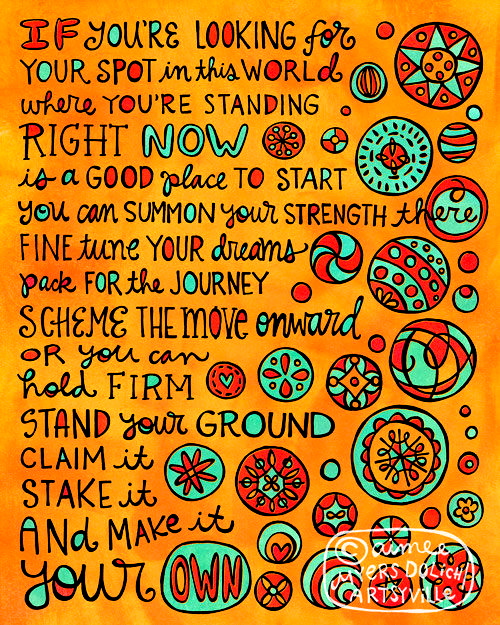 IF YOU'RE LOOKING for
YOUR SPOT in this WORLD
where YOU'RE STANDING
RIGHT NOW
is a GOOD place TO START
you can SUMMON your STRENGTH there
FINE tune YOUR dreams
pack FOR the JOURNEY
SCHEME THE MOVE onward
OR you can
hold FIRM
STAND your GROUND
CLAIM it
STAKE it
AND MAKE it
your OWN
© aimee
MYERS DOLICH
ARTSYVILLE